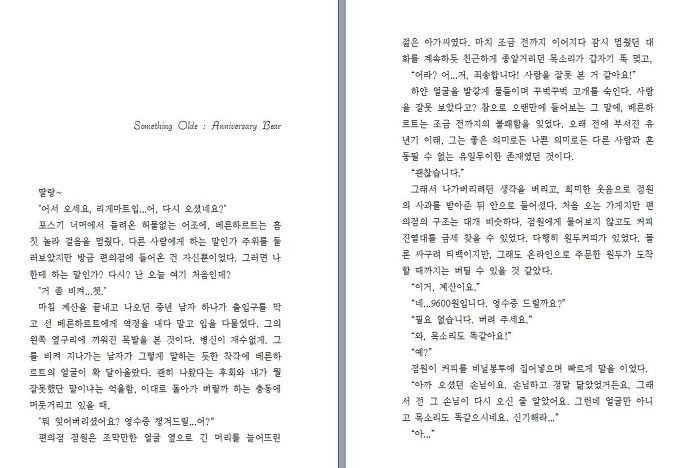 Something Olde : Anniversary Bear
딸랑~
"어서 오세요, 리게마트입...어, 다시 오셨네요?"
포스기 너머에서 들려온 허물없는 어조에, 베른하르트는 흠
칫 놀라 걸음을 멈췄다. 다른 사람에게 하는 말인가 주위를 둘
러보았지만 방금 편의점에 들어온 건 자신뿐이었다. 그러면 나
한테 하는 말인가? 다시? 난 오늘 여기 처음인데?
"거 좀 비켜...쳇."
마침 계산을 끝내고 나오던 중년 남자 하나가 출입구를 막
고 선 베른하르트에게 역정을 내다 말고 입을 다물었다. 그의
왼쪽 옆구리에 끼워진 목발을 본 것이다. 병신이 재수없게. 그
를 비켜 지나가는 남자가 그렇게 말하는 듯한 착각에 베른하
르트의 얼굴이 확 달아올랐다. 괜히 나왔다는 후회와 내가 뭘
잘못했단 말이냐는 억울함, 이대로 돌아가 버릴까 하는 충동에
머뭇거리고 있을 때,
"뭐 잊어버리셨어요? 영수증 챙겨드릴...어?"
편의점 점원은 조막만한 얼굴 옆으로 긴 머리를 늘어뜨린
젊은 아가씨였다. 마치 조금 전까지 이어지다 잠시 멈췄던 대
화를 계속하듯 친근하게 종알거리던 목소리가 갑자기 뚝 멎고,
"어라? 어...저, 죄송합니다! 사람을 잘못 본 거 같아요!"
하얀 얼굴을 발갛게 물들이며 꾸벅꾸벅 고개를 숙인다. 사람
을 잘못 보았다고? 참으로 오랜만에 들어보는 그 말에, 베른하
르트는 조금 전까지의 불쾌함을 잊었다. 오래 전에 부서진 유
년기 이래, 그는 좋은 의미로든 나쁜 의미로든 다른 사람과 혼
동될 수 없는 유일무이한 존재였던 것이다.
"괜찮습니다."
그래서 나가버리려던 생각을 버리고, 희미한 웃음으로 점원
의 사과를 받아준 뒤 안으로 들어섰다. 처음 오는 가게지만 편
의점의 구조는 대개 비슷하다. 점원에게 물어보지 않고도 커피
진열대를 금세 찾을 수 있었다. 다행히 원두커피가 있었다. 물
론 싸구려 티백이지만, 그래도 온라인으로 주문한 원두가 도착
할 때까지는 버틸 수 있을 것 같았다.
"이거, 계산이요."
"네...9600원입니다. 영수증 드릴까요?"
"필요 없습니다. 버려 주세요."
"와, 목소리도 똑같아요!"
"예?"
점원이 커피를 비닐봉투에 집어넣으며 빠르게 말을 이었다.
"아까 오셨던 손님이요, 손님하고 정말 닮았었거든요. 그래
서 전 그 손님이 다시 오신 줄 알았어요. 그런데 얼굴만 아니
고 목소리도 똑같으시네요. 신기해라..."
"아..."